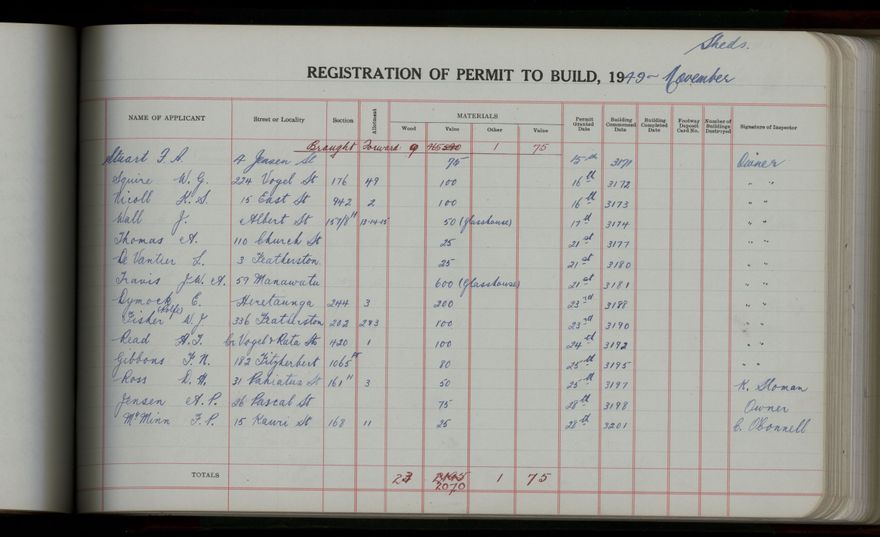 Sheds.
REGISTRATION OF PERMIT TO BUILD, 1949 - November
NAME OF APPLICANT Street or Locality Section Allotment MATERIALS Wood Value Other Value Permit Granted Date Building Commenced Date Building Completed Date Footway Deposit Card No. Number of Buildings Destroyed Signature of Inspector
Brought Forward 9 1 75
Stuart F. A. 4 Jensen St 75 15th 3171 Owner
Squire W. G. 224 Vogel St 176 49 100 16th 3172 " "
Nicoll K. S. 15 East St 942 2 100 16th 3173 " "
Wall J. Albert St 157/8" 13-14-15 50 (Glasshouse) 17th 3174 " "
Thomas A. 110 Church St 25 21st 3177 " "
De Vantier L. 3 Featherston 25 21st 3180 " "
Travis J. W. A. 57 Manawatu 600 (Glasshouse) 21st 3181 " "
Dymock E. Heretaunga 244 3 200 23rd 3188 " "
Fisher (Rolfe) W. J 336 Featherston 202 2&3 100 23rd 3190 " "
Read A. T. Cr Vogel & Rata Sts 420 1 100 24th 3192 " "
Gibbons F. N. 182 Fitzherbert 1065 80 25th 3195 " "
Ross D. H. 31 Pahiatua St 161" 3 50 25th 3197 K. Sloman
Jensen A. P. 26 Pascal St 75 28th 3198 Owner
McMinn F. P. 15 Kauri St 168 11 25 28th 3201 C. O'Connell
TOTALS 23 1 75
2070